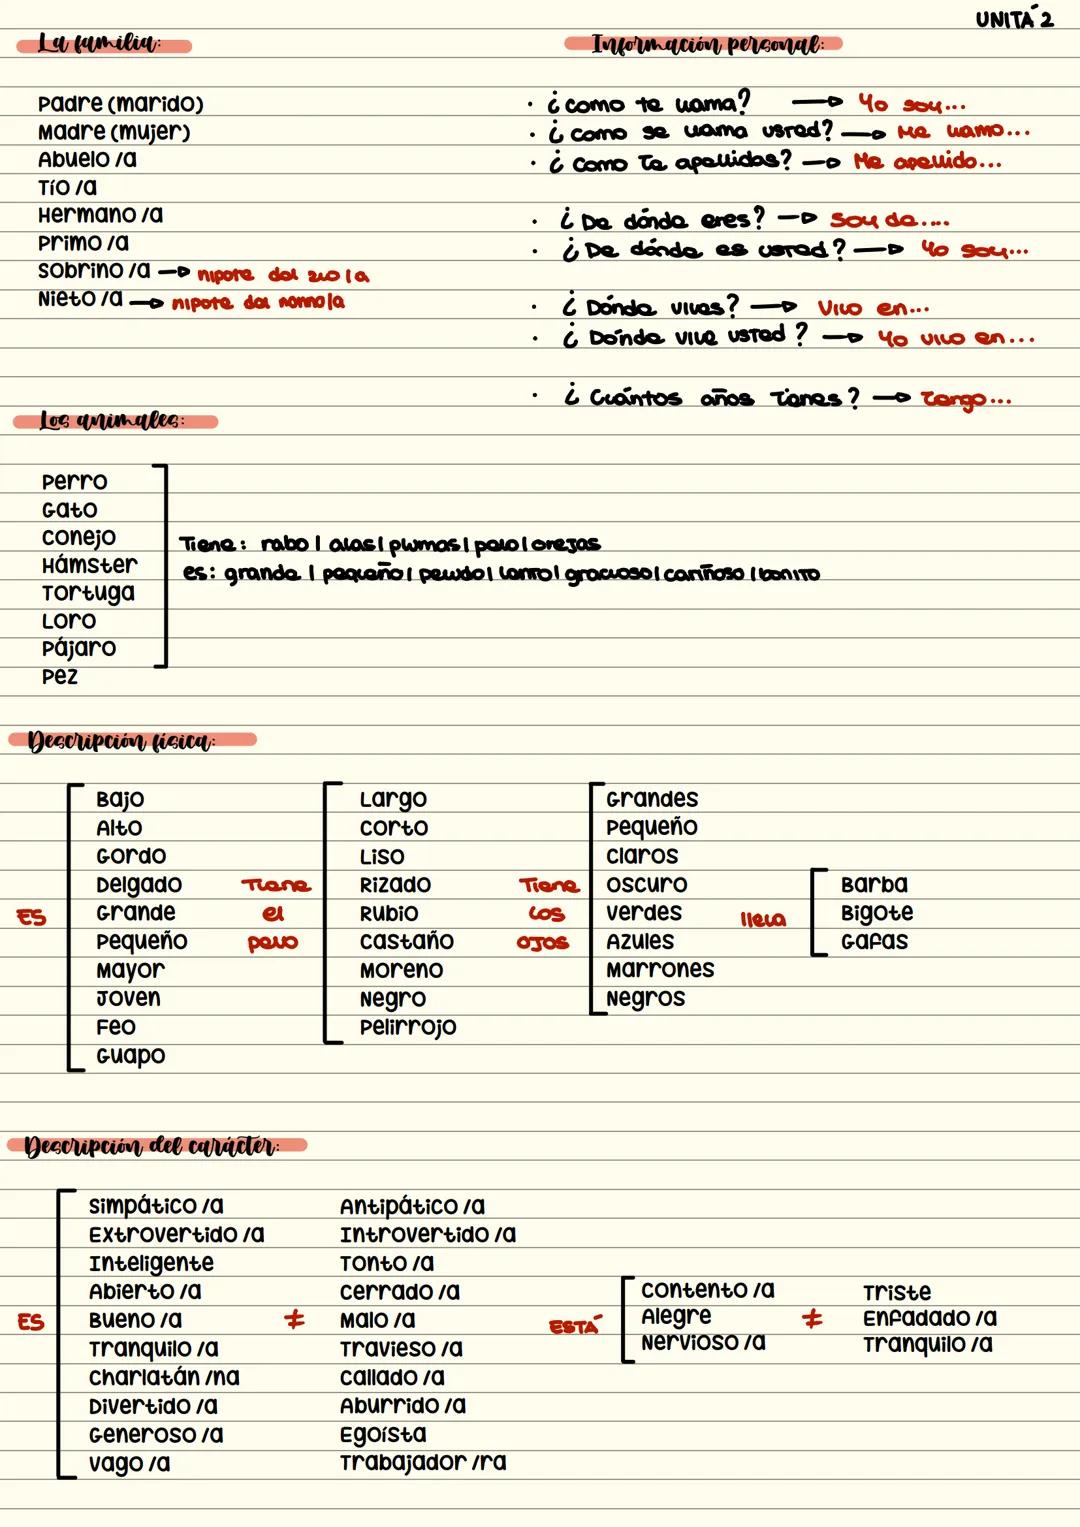 UNITÁ 2
La familia:
Padre (marido)
Madre (mujer)
Abuelo /a
Tío /a
Hermano /a
Primo /a
Sobrino /a → nipote dal zio/a
Nieto /a → nipote dal nonno/a
Información personal:
· ¿como te llama? → Yo soy...
· ¿como se llama usted? → Me llamo...
· ¿como Te apellidas? → Me apellido...
· ¿De dónde eres? → Soy de....
· ¿De dónde es usted? → Yo soy...
· ¿Dónde vives? → Vivo en...
· ¿Dónde vive usted? → Yo vivo en...
· ¿Cuántos años Tienes? → Tengo...
Los animales:
Perro
Gato
Conejo
Hámster
Tortuga
Loro
Pájaro
Pez
Tiene: rabo | alas | plumas | pelo | orejas
es: grande | pequeño | peludo | lento | gracioso | cariñoso | bonito
Descripción física:
ES
Bajo
Alto
Gordo
Delgado
Grande
Pequeño
Mayor
Joven
Feo
Guapo
Tiene
el
pelo
Largo
Corto
Liso
Rizado
Rubio
Castaño
Moreno
Negro
Pelirrojo
Tiene
los
ojos
Grandes
Pequeño
Claros
Oscuro
Verdes
Azules
Marrones
Negros
lleva
Barba
Bigote
Gafas
Descripción del carácter:
ES
Simpático /a
Extrovertido /a
Inteligente
Abierto /a
Bueno /a
Tranquilo /a
Charlatán /na
Divertido /a
Generoso /a
Vago /a
≠
Antipático /a
Introvertido /a
Tonto /a
Cerrado /a
Malo /a
Travieso /a
Callado /a
Aburrido /a
Egoísta
Trabajador /ra
ESTÁ
Contento /a
Alegre
Nervioso /a
≠
Triste
Enfadado /a
Tranquilo /a